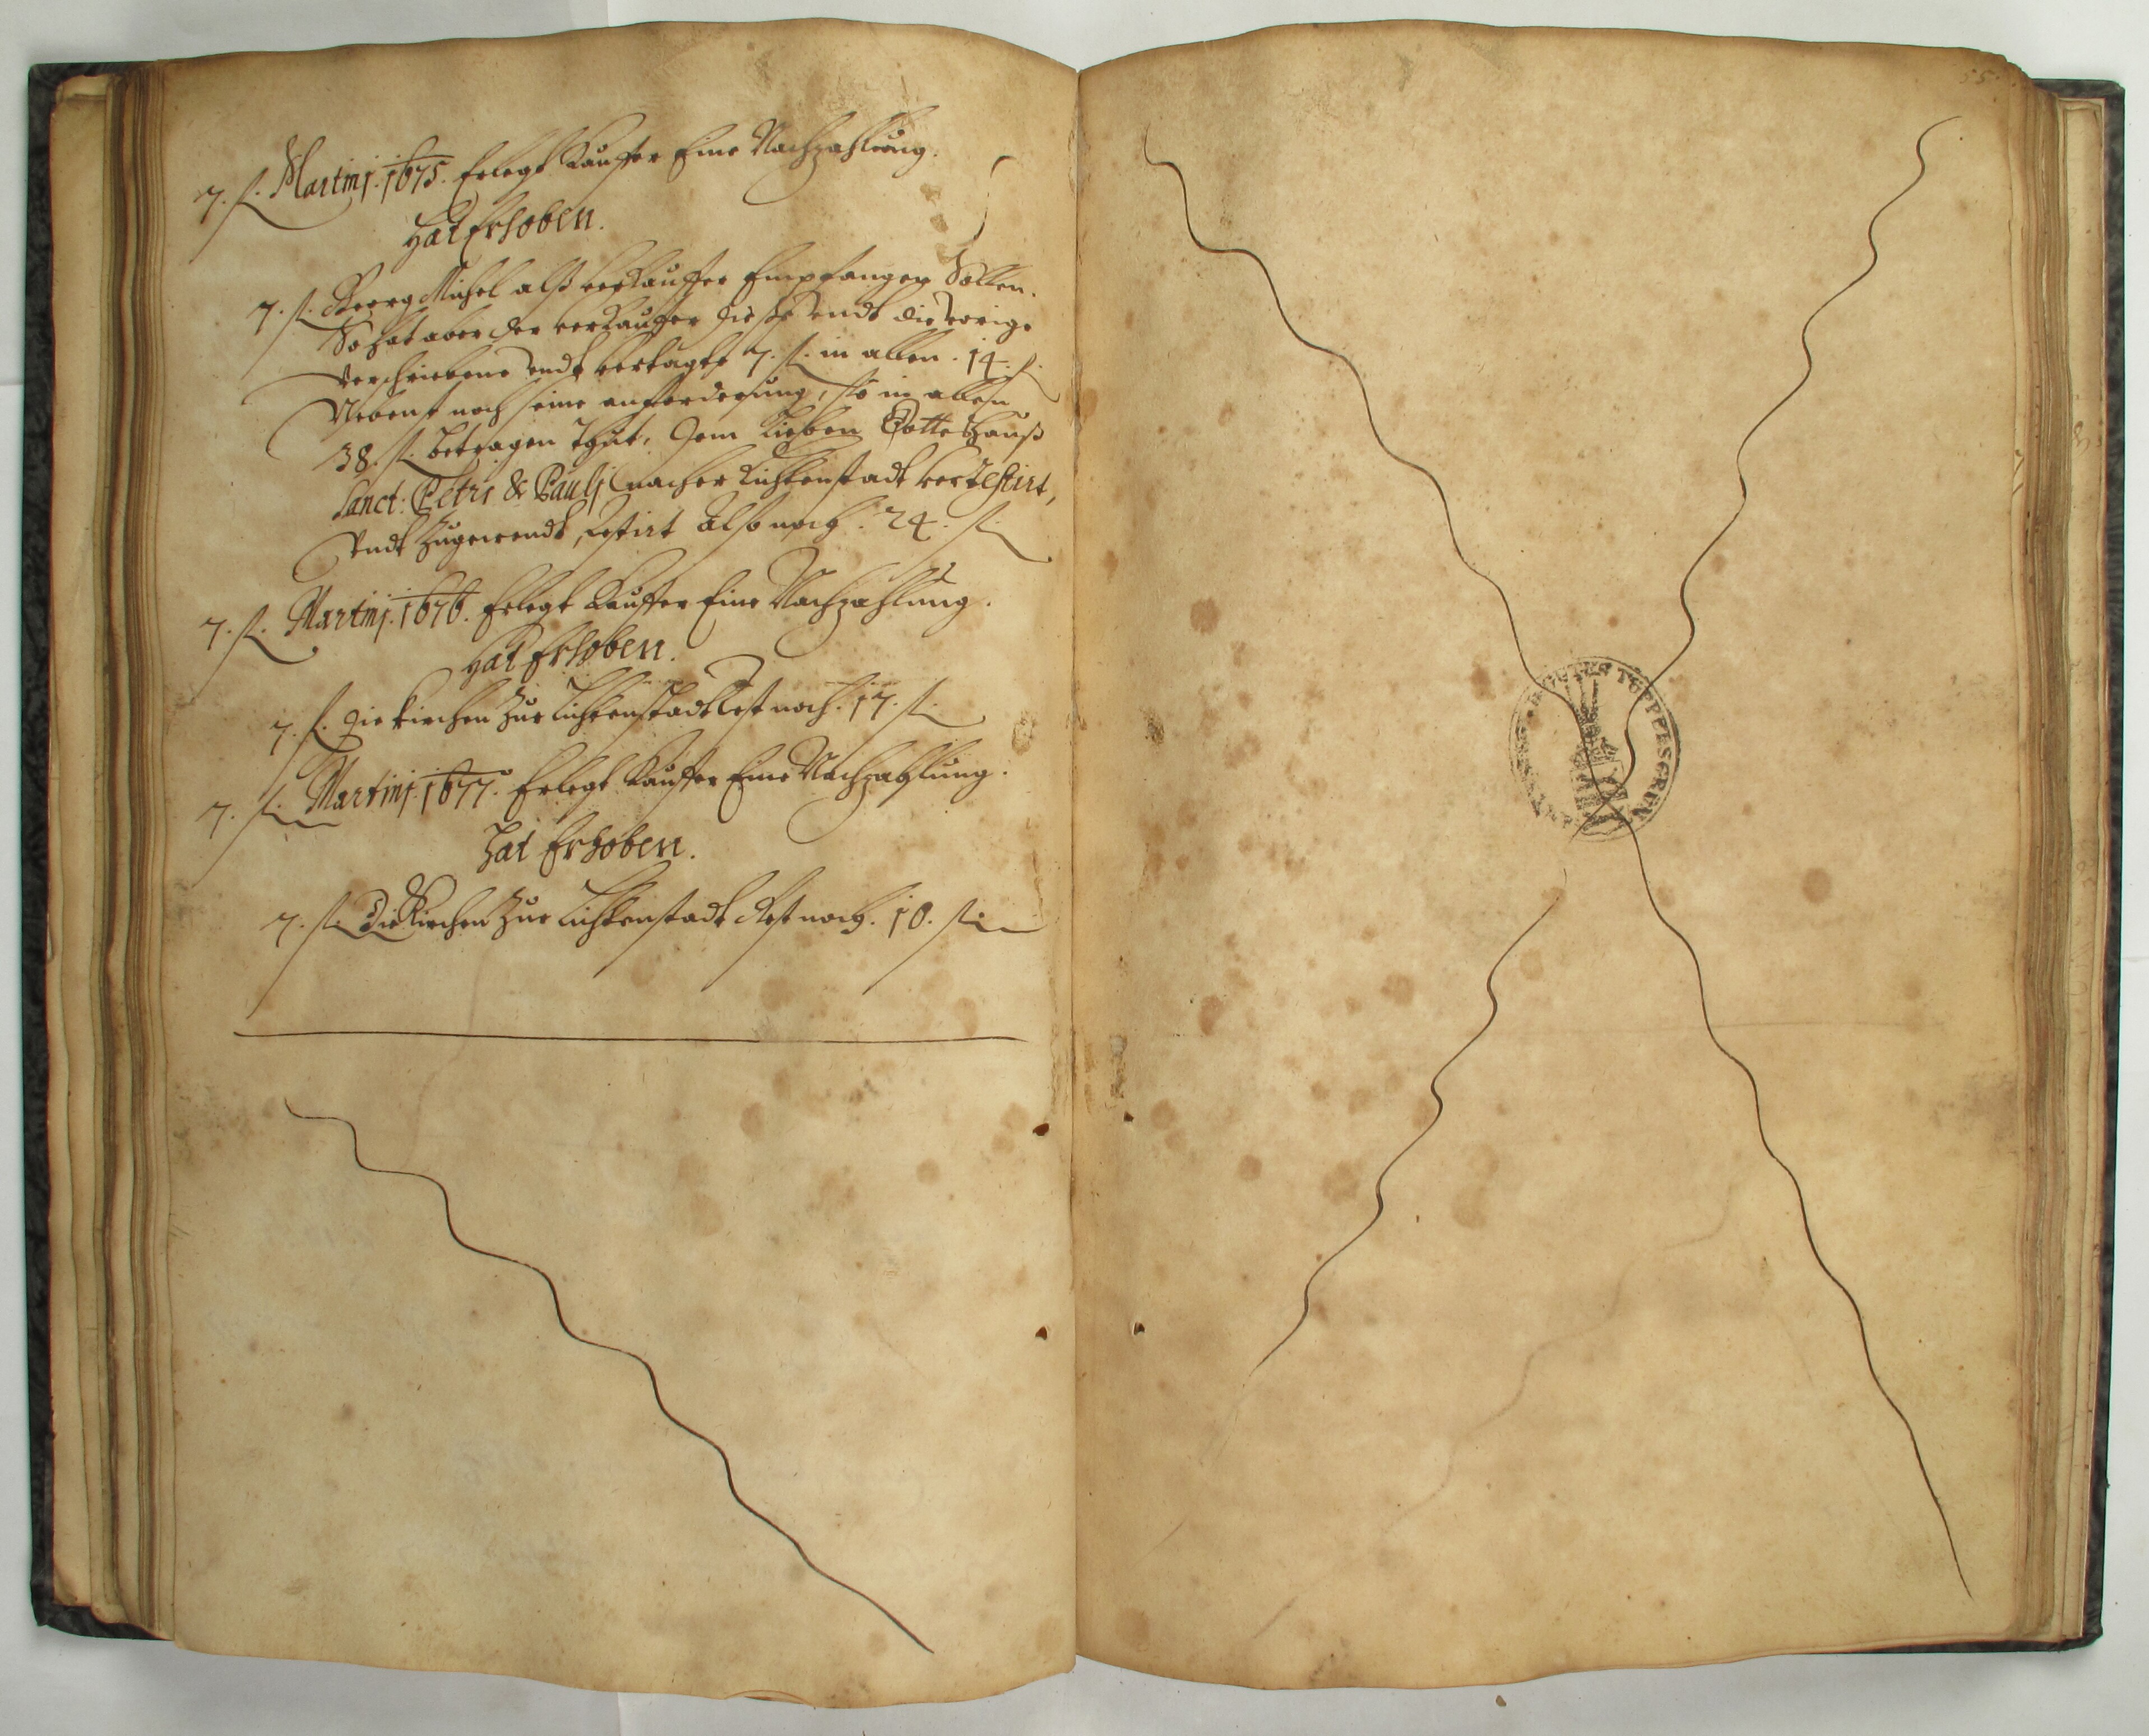 7. fl. Martinj. 1675. Erlegt Kauffer Eine Nachzahlung.
Hat Erhoben.
7. fl. Georg Michel alß verkauffer Empfangen Sollen.
So hat aber der verkauffer diesse undt die vorige
verschriebene undt vertagte 7. fl. in allen. 14. fl.
Nebenst noch seine anforderung, so in allen
38. fl. betragen thut, dem Lieben Gotteshauß
Sanct: Petri & Paulj nacher Lichtenstadt vertestirt,
undt Zugewendt, restirt Also noch. 24. fl.
7. fl. Martinj. 1676. Erlegt Kauffer Eine Nachzahlung.
Hat Erhoben.
7. fl. die Kirchen Zur Lichtenstadt Rest noch. 17. fl.
7. fl. Martinj. 1677. Erlegt Kauffer Eine Nachzahlung.
Hat Erhoben.
7. fl. Die Kirchen Zur Lichtenstadt Rest noch. 10. fl.
55
TÜPPELSGRÜN